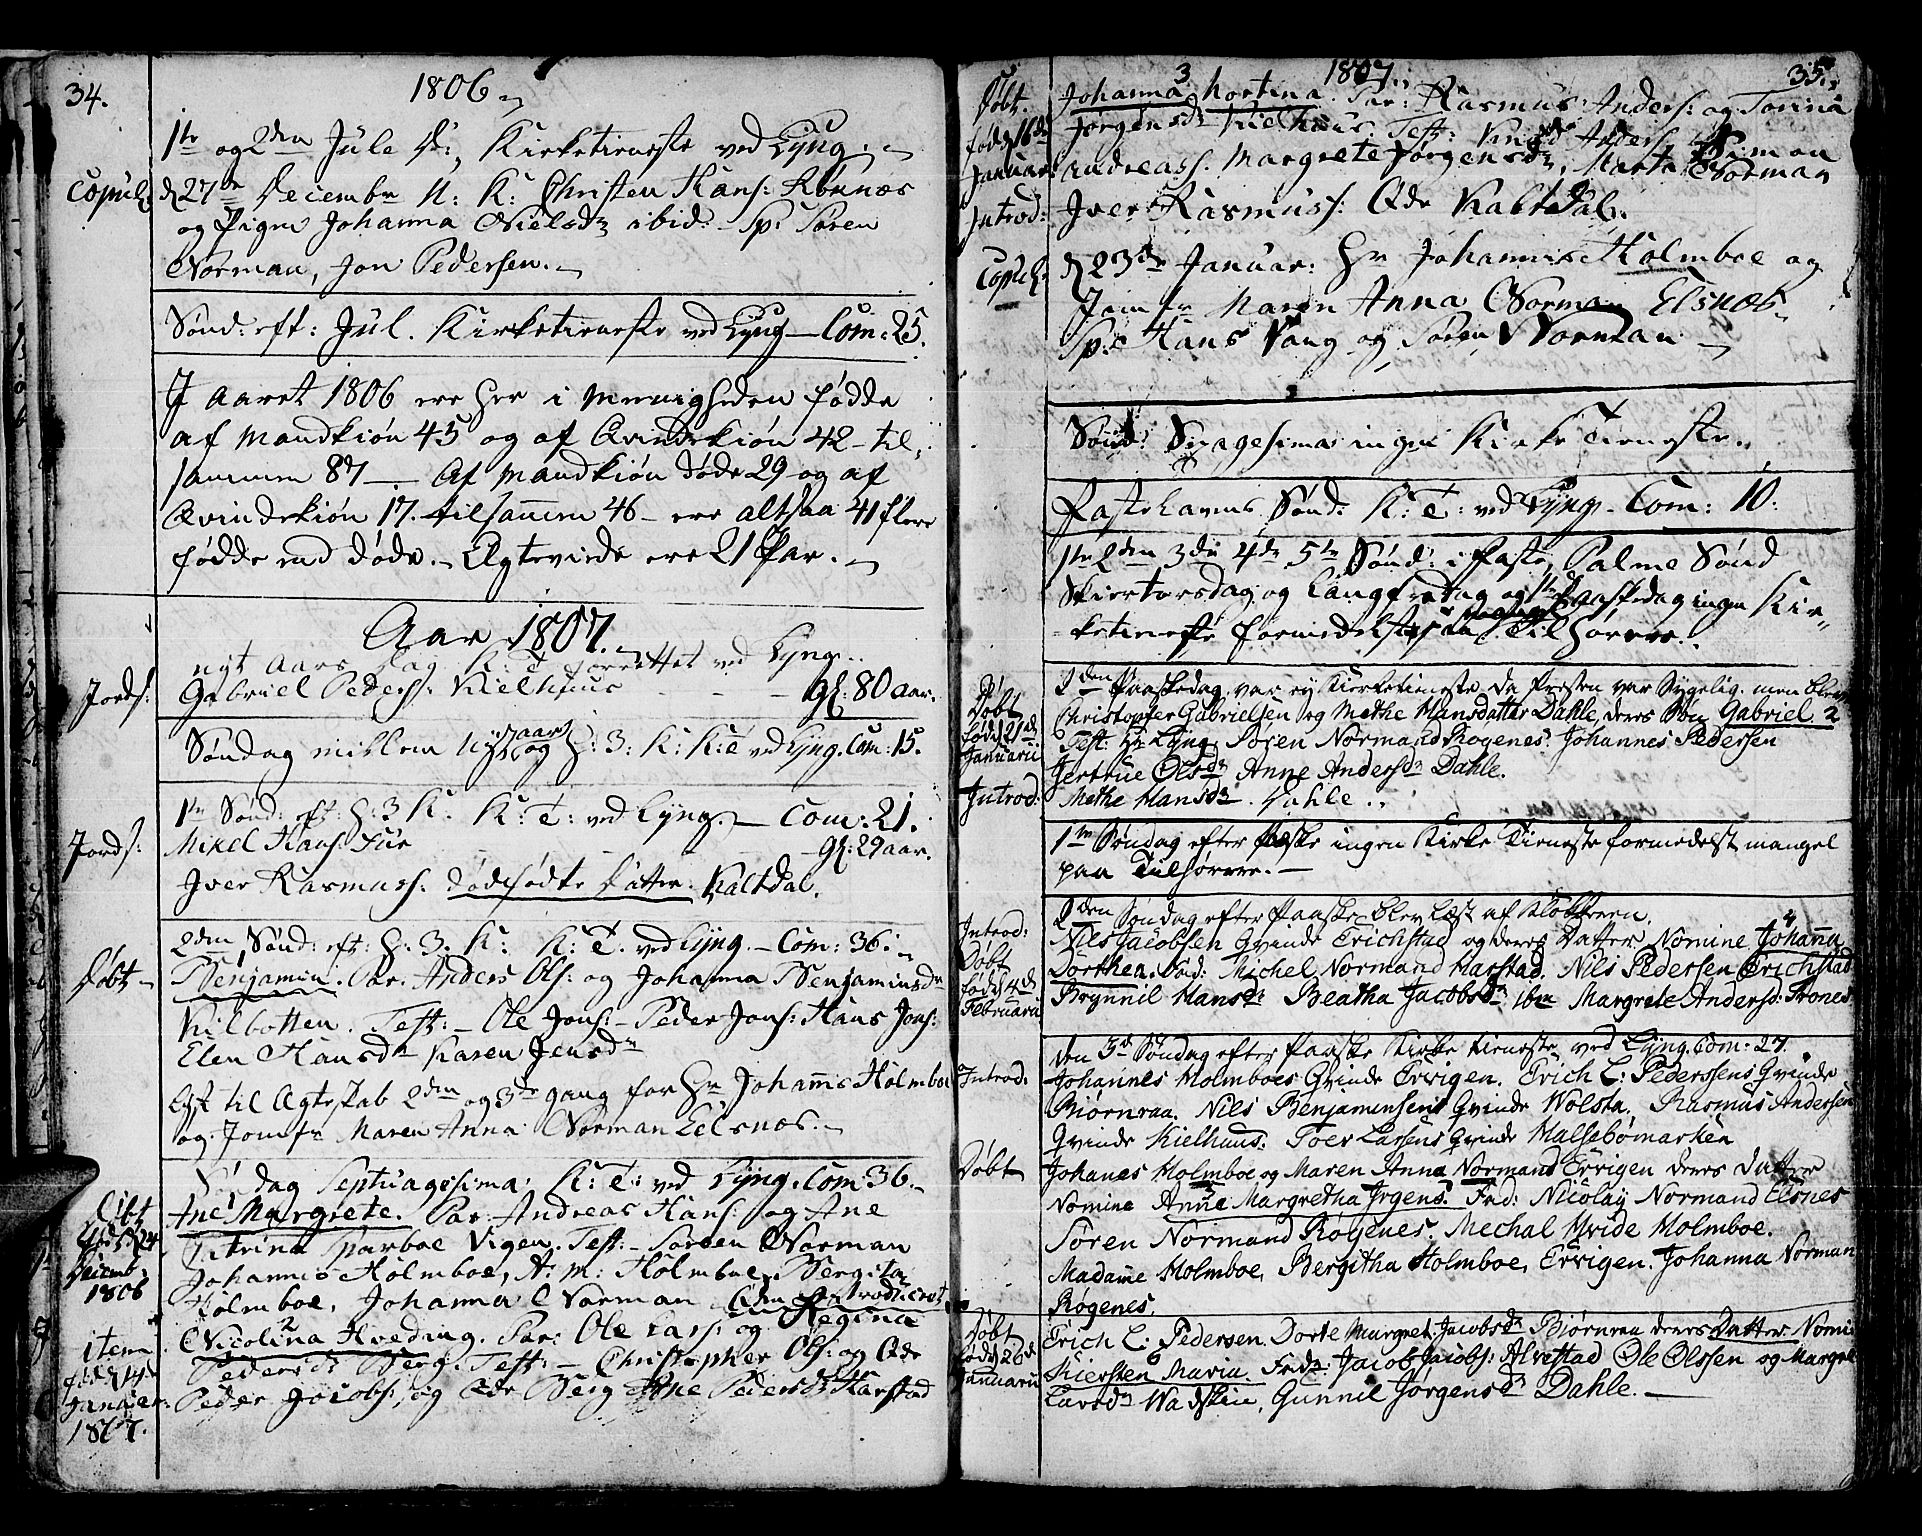 34.
1806
1te og 2den Jule D: Kirketieneste ved Lyng.
Copul: d 27de Decembr U: K: Christen Hans: Rønnæs
og Pigen Johanna Nielsdr ibid: Sp: Søren
Norman, Jon Pedersen.
Sønd: eft: Jul. Kirketieneste ved Lyng — Com: 25.
J Aaret 1806 ere her i Menigheden fødde
af Mandkiøn 45 og af Qvindekiøn 42 - til
sammen 87 —. Af Mandkiøn døde 29 og af
Qvindekiøn 17. tilsamen 46 - ere altsaa 41 flere
fødde end døde. - Ægteviede ere 21 Par.
Aar 1807.
nyt Aars Dag K: T forrettet ved Lyng.
Jords: Gabriel Peders: Kielhuus - - - Gl: 80 aar.
Søndag mellem Nyt aar og H: 3: K: K:T ved Lyng. Com: 15.
1te Sønd: eft: H: 3 K: K: T: ved Lyng. — Com: 21.
Jords: Mikel Hans: - - - Gl: 29 aar.
Jver Rasmuss: dødfødte Datter: Kaltdal.
2den Sønd: eft: H: 3. K: K: T. ved Lyng. - Com: 36.
Døbt - Benjamin. Par. Anders Ols: og Johanna Benjaminsdr
Kilbotten. Test: - Ole Jons: - Peder Jons: Hans Jons:
Elen Hansdr Karen Jensdr
Lyst til Ægteskab 2den og 3de gang for Hr Johannis Holmboe
og Jomfr Maren Anna Norman Eelsnæs. -
Søndag Septuagesima: K: T: ved Lyng. Com: 36.
Døbt Ane Margrete. Par: Andreas Hans: og Ane
fød d 24 Petrina Parboe Vigen. Test: - Søren Norman
Decemb: Johannis Holmboe, A: M: Holmboe, Bergita
1806 Holmboe, Johanna Norman
item Nicolina Hveding. Par: Ole Lars: og Regina
fød d 14de Pedersdr Berg. Test: - Christopher Ols: og Ede
Januar: Peder Jacobs: og Berg Ane Pedersdr Harstad
1807.
1807.
35.
Døbt. Johanna 3 Mortina. Par: Rasmus Anders: og Torina
fød d 16de Jørgensdr Kielhuus. Test: Anders:
Januar: Andreass. Margrete Jørgensdr, Marta Norman
Introd: Jver Rasmuss: Kaltdal.
Copul: d 23de Januar: Hr Johannis Holmboe og
Jomfr Maren Anna Norman Elsnæs
Sp: Hans Vang og Søren Norman
Sønd: Sexagesima ingen Kirke Tieneste.
Fastelavns Sønd: K: T: ved Lyng - Com: 10.
1te 2den 3die 4de 5te Sønd: i Faste, Palme Sønd
Skiertorsdag og Langfredag og 1te Paaskedag ingen Kir-
ketieneste formedelst Mangel paa Tilhørere.
2den Paaskedag var ey Kierketieneste da Presten var Sygelig. men blev
Døbt Christopfer Gabrielsen og Methe Hansdatter Dahle, deres Søn Gabriel 2
fød d 21de Test: Hr Lyng Søren Normand Røgenes. Johannes Pedersen
Januarii Jertrue Olsdr Anne Andersdr Dahle.
Introd: Methe Hansdr. Dahle.
1te Søndag efter Paaske ingen Kirke Tieneste formedelst mangel
paa Tilhørere. —
2den Søndag efter Paaske blev Læst af Klokkeren.
Introd: Nils Jacobsen Qvinde Erichstad og deres Datter Nomine Johanna 4
Døbt Dorthea. Fad: Michel Normand Harstad. Nils Pedersen Erichstad
fød d 4de Brynnil Hansdr Beatha Jacobsdr ibm Margrete Andersd: Trones
Februarii
den 3de Søndag efter Paaske Kirke tieneste ved Lyng. Com: 27.
Introd: Johannes Holmboes Qvinde Ervigen. Erich L: Pederssens Qvinde
Biørnraa. Nils Benjaminsens Qvinde Wolsta. Rasmus Andersen
Qvinde Kielhuus. Toer Larsens Qvinde Halsebømarken
Døbt Johanes Holmboe og Maren Anna Normand Ervigen deres Datter
Nomine Anne Margretha Jrgens. 5 Fad: Nicolay Normand Elsnes
Søren Normand Røgenes. Mechal Hvide Holmboe.
Madame Holmboe, Bergitha Holmboe, Ervigen. Johanna Norman
Røgenes.
Døbt Erich L: Pedersen. Dorte Margret Jacobsdr Biørnraa deres Datter Nomi
fød d 26de Kiersten Maria. 6 Fadr Jacob Jacobs: Alvestad Ole Olssen og Margre
Januarii Larsdr Wadskin, Gunnil Jørgensdr Dahle. —